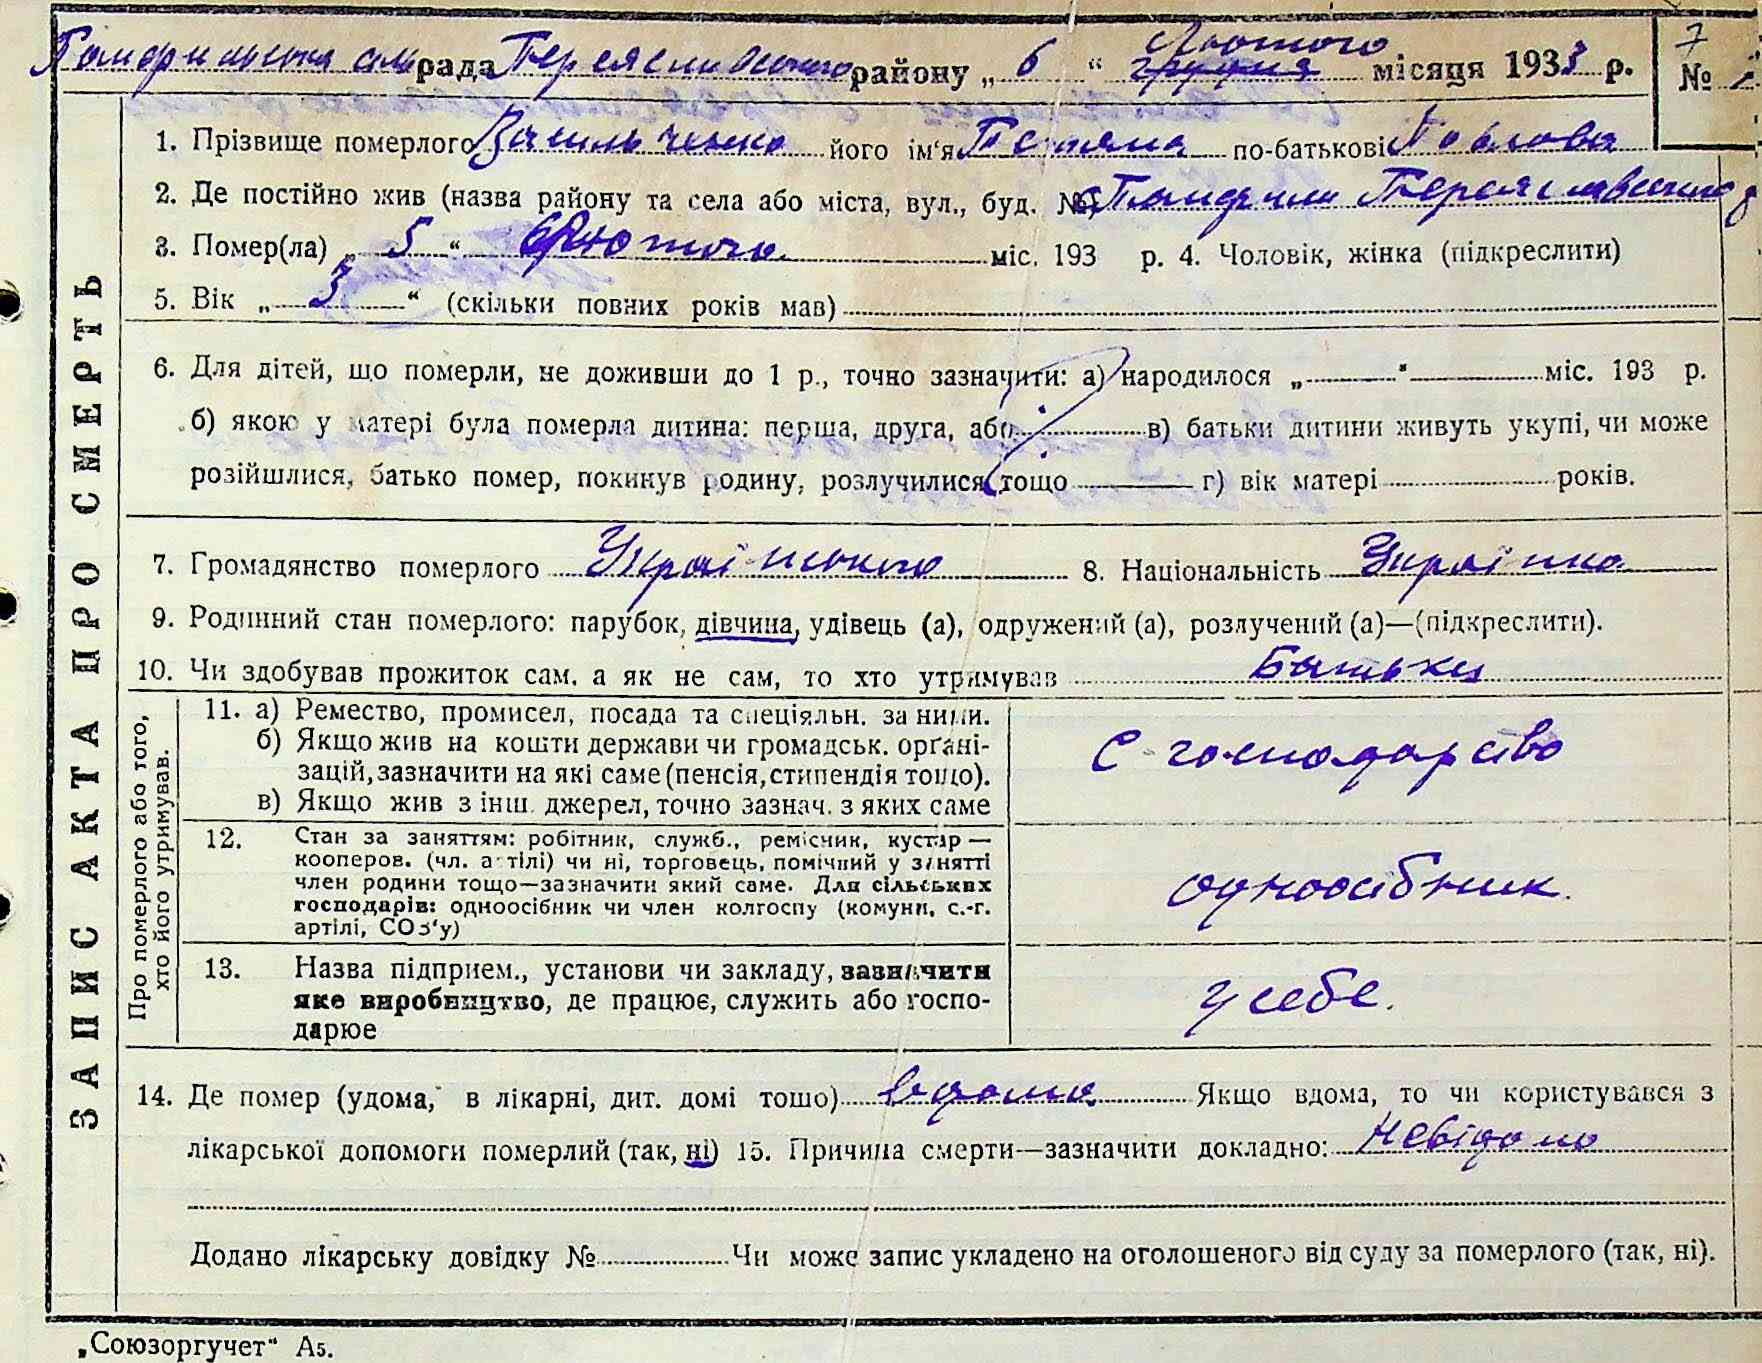 Помфилська сільрада Переяславського району „ 6 “ Лютого грудня місяця 1933 р.
7
№
ЗАПИС АКТА ПРО СМЕРТЬ
1. Прізвище померлого Васильченко його ім'я Тетяна по-батькові Павлова
2. Де постійно жив (назва району та села або міста, вул., буд. № с. Помфили Переяславського
3. Помер(ла) „ 5 “ Лютого міс. 193 р. 4. Чоловік, жінка (підкреслити)
5. Вік „ 3 “ (скільки повних років мав)
6. Для дітей, що померли, не доживши до 1 р., точно зазначити: а) народилося „ “ міс. 193 р.
б) якою у матері була померла дитина: перша, друга, або в) батьки дитини живуть укупі, чи може
розійшлися, батько помер, покинув родину, розлучилися, тощо г) вік матері років.
7. Громадянство померлого Українського 8. Національність Українка
9. Родинний стан померлого: парубок, дівчина, удівець (а), одружений (а), розлучений (а)—(підкреслити).
10. Чи здобував прожиток сам, а як не сам, то хто утримував Батьки
Про померлого або того, хто його утримував.
11. а) Ремество, промисел, посада та спеціяльн. за ними.
б) Якщо жив на кошти держави чи громадськ. орґані-
зацій, зазначити на які саме (пенсія, стипендія тощо).
в) Якщо жив з інш. джерел, точно зазнач. з яких саме
С-господарство
12. Стан за заняттям: робітник, служб., ремісник, кустар—
кооперов. (чл. артілі) чи ні, торговець, помічний у занятті
член родини тощо—зазначити який саме. Для сільських
господарів: одноосібник чи член колгоспу (комуни, с.-г.
артілі, СОЗ'у)
одноосібник.
13. Назва підприєм., установи чи закладу, зазначити
яке виробництво, де працює, служить або госпо-
дарює
у себе.
14. Де помер (удома, в лікарні, дит. домі тощо) вдома Якщо вдома, то чи користувався з
лікарської допомоги померлий (так, ні) 15. Причина смерти—зазначити докладно: Невідомо
Додано лікарську довідку № Чи може запис укладено на оголошеного від суду за померлого (так, ні).
„Союзоргучет“ А5.